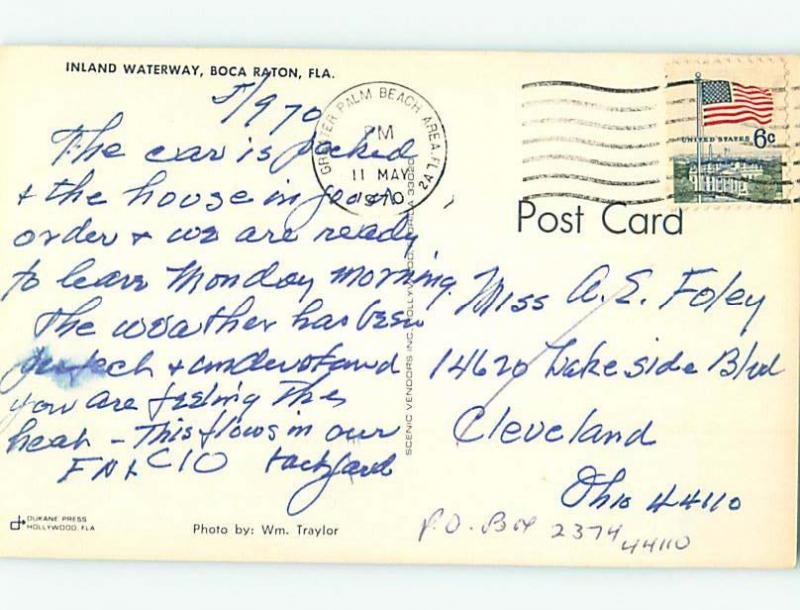 INLAND WATERWAY, BOCA RATON, FLA.
5/9 70
The car is packed
+ the house in good
order + we are ready
to leave Monday morning.
The weather has been
perfect + understand
you are feeling the
heat - This flows in our
backyard
GREATER PALM BEACH AREA, FL
PM
11 MAY
1970
2A
UNITED STATES 6c
Post Card
Miss A. E. Foley
14620 Lakeside Blvd
Cleveland
Ohio 44110
P.O. Box 2374
44110
SCENIC VENDORS INC. HOLLYWOOD, FLORIDA 33020
DUKANE PRESS
HOLLYWOOD, FLA
Photo by: Wm. Traylor